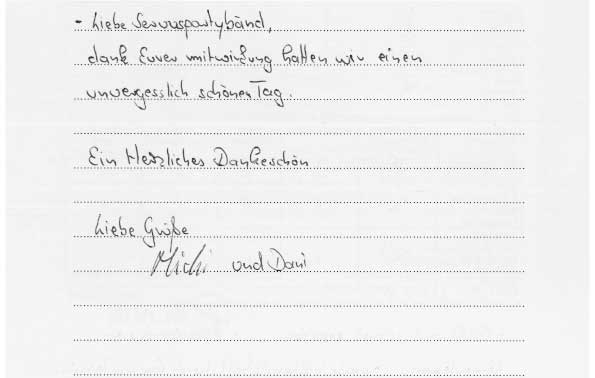 - Liebe Servuspartybänd,
dank Eurer mitwirkung hatten wir einen
unvergesslich schönen Tag.
Ein Herzliches Dankeschön
Liebe Grüße
Michi und Dani